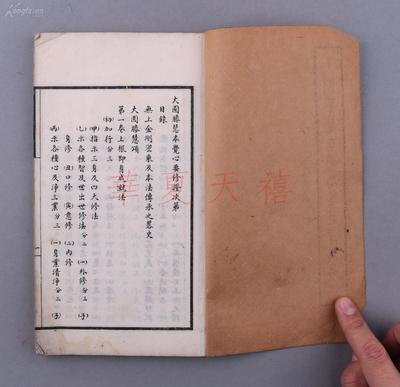 大圓勝慧本覺心要修證次第
目錄
無上金剛密乘及本法傳承之歷史
大圓勝慧頌
第一卷上根即身成就法
(初)加行分三
(甲)指示三身及四大修法
(乙)示各種智及世出世修法分二 (一)外修分三 (子)
身修 (丑)口修 (寅)意修 (二)內修
(丙)示各種心及淨三業分三 (一)身業清淨分二 (子)
華夏天禧
kongfz.cn